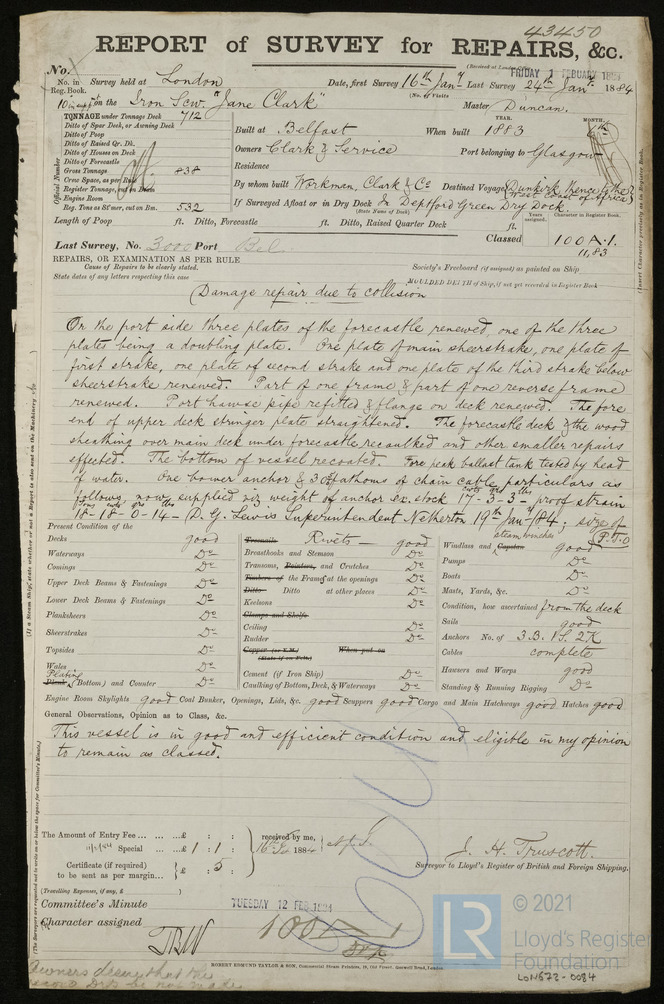 43450
REPORT of SURVEY for REPAIRS, &c.
(Received at London Office
FRIDAY 1 FEBUARY 1884
No.
No. in Reg. Book. Survey held at London Date, first Survey 16th Jany Last Survey 24th Jany 1884
(No. of Visits
10 in suppt on the Iron Scw. "Jane Clark" Master Duncan.
TONNAGE under Tonnage Deck 712
Ditto of Spar Deck, or Awning Deck
Ditto of Poop
Ditto of Raised Qr. Dk.
Ditto of Houses on Deck
Ditto of Forecastle
Gross Tonnage 838
Crew Space, as per Rule
Register Tonnage, cut on Beam
Engine Room
Reg. Tons as St'mer, cut on Bm. 532
Official Number
YEAR. MONTH.
Built at Belfast When built 1883
Owners Clark & Service Port belonging to Glasgow
Residence
By whom built Workman, Clark & Co Destined Voyage Dunkirk thence to the West Coast of Africa
If Surveyed Afloat or in Dry Dock In Deptford Green Dry Dock.
(State Name of Dock)
Length of Poop ft. Ditto, Forecastle ft. Ditto, Raised Quarter Deck ft.
Years assigned. Character in Register Book.
Last Survey, No. 3000 Port Bel. Classed 100A.1.
11,83
REPAIRS, OR EXAMINATION AS PER RULE
Cause of Repairs to be clearly stated.
State dates of any letters respecting this case
Society's Freeboard (if assigned) as painted on Ship
MOULDED DEPTH of Ship, if not yet recorded in Register Book
Damage repair due to collision
On the port side three plates of the forecastle renewed, one of the three
plates being a doubling plate. One plate of main sheerstrake, one plate of
first strake, one plate of second strake and one plate of the third strake below
sheerstrake renewed. Part of one frame & part of one reverse frame
renewed. Port hawse pipe refitted & flange on deck renewed. The fore
end of upper deck stringer plate straightened. The forecastle deck & the wood
sheathing over main deck under forecastle recaulked and other smaller repairs
effected. The bottom of vessel recoated. Fore peak ballast tank tested by head
of water. One bower anchor & 30 fathoms of chain cable particulars as
follows, now supplied viz weight of anchor ex. stock 17-3-3 proof strain
18-18-0-14 - D. G. Lewis Superintendent Netherton 19th Jany /84; size of
P.T.O
Present Condition of the
Decks good
Waterways Do
Comings Do
Upper Deck Beams & Fastenings Do
Lower Deck Beams & Fastenings Do
Planksheers Do
Sheerstrakes Do
Topsides Do
Wales Do
Plating
Plank (Bottom) and Counter Do
Treenails Rivets - good
Breasthooks and Stemson Do
Transoms, Pointers, and Crutches Do
Timbers of the Frame at the openings Do
Ditto Ditto at other places Do
Keelsons Do
Clamps and Shelfs
Ceiling Do
Rudder Do
Copper (or Y.M.) When put on
(State if on Felt)
Cement (if Iron Ship) Do
Caulking of Bottom, Deck, & Waterways Do
steam winches
Windlass and Capstan good
Pumps Do
Boats Do
Masts, Yards, &c. Do
Condition, how ascertained from the deck
Sails good
Anchors No. of 3.B. 1S. 2K
Cables complete
Hawsers and Warps good
Standing & Running Rigging Do
Engine Room Skylights good Coal Bunker, Openings, Lids, &c. good Scuppers good Cargo and Main Hatchways good Hatches good
General Observations, Opinion as to Class, &c.
This vessel is in good and efficient condition and eligible in my opinion
to remain as classed.
The Amount of Entry Fee ... £ : : received by me,
Special ... £ 1 : 1 :
1884
Certificate (if required) to be sent as per margin... £ : 5 :
(Travelling Expenses, if any, £ )
J. H. Truscott.
Surveyor to Lloyd's Register of British and Foreign Shipping.
Committee's Minute TUESDAY 12 FEB 1884
Character assigned 100A1
ROBERT EDMUND TAYLOR & SON, Commercial Steam Printers, 19, Old Street, Goswell Road, London
© 2021
LR
Lloyd's Register
Foundation
LON672-0084